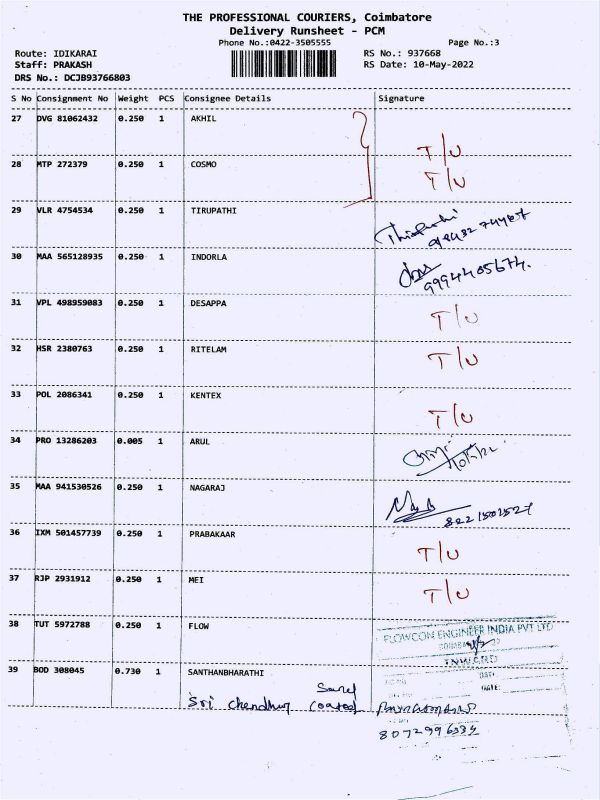 THE PROFESSIONAL COURIERS, Coimbatore
Delivery Runsheet - PCM
Phone No.:0422-3505555 Page No.:3
Route: IDIKARAI RS No.: 937668
Staff: PRAKASH RS Date: 10-May-2022
DRS No.: DCJB93766803
S No Consignment No Weight PCS Consignee Details Signature
27 DVG 81062432 0.250 1 AKHIL
T/U
28 MTP 272379 0.250 1 COSMO
T/U
29 VLR 4754534 0.250 1 TIRUPATHI
30 MAA 565128935 0.250 1 INDORLA
9994405674.
31 VPL 498959083 0.250 1 DESAPPA
T/U
32 HSR 2380763 0.250 1 RITELAM T/U
33 POL 2086341 0.250 1 KENTEX
T/U
34 PRO 13286203 0.005 1 ARUL
35 MAA 941530526 0.250 1 NAGARAJ
36 IXM 501457739 0.250 1 PRABAKAAR
T/U
37 RJP 2931912 0.250 1 MEI
T/U
38 TUT 5972788 0.250 1 FLOW
FLOWCON ENGINEER INDIA PVT LTD
INWARD
39 BOD 308045 0.730 1 SANTHANBHARATHI
DATE:
Sri